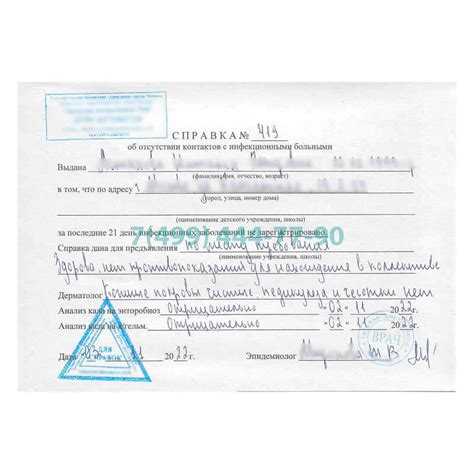 СПРАВКА № 419
об отсутствии контактов с инфекционными больными
Выдана
(фамилия, отчество, возраст)
в том, что по адресу
(город, улица, номер дома)
(наименование детского учреждения, школы)
за последние 21 день инфекционных заболеваний не зарегистрировано
7(499) 444-77-90
Справка дана для предъявления по месту требования
(наименование учреждения, школы)
Здорова, нет противопоказаний для нахождения в коллективе
Дерматолог кожные покровы чистые педикулеза и чесотки нет
Анализ кала на энтеробиоз Отрицательно - 02 - 11 2022
Анализ кала на я/гельм. Отрицательно - 02 - 11 2022
Дата 11 2022 Эпидемиолог Т В
ДЛЯ СПРАВОК
ВРАЧ